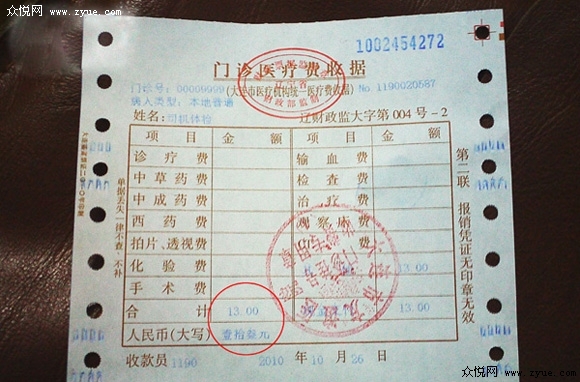 众悦网
www.zyue.com
1002454272
门诊医疗费收据
门诊号: 00009999 (大连市医疗机构统一医疗费收据) No 1190020587
病人类型: 本地普通
姓名: 司机体检 辽财政监大字第 004 号-2
项目 金额 项目 金额
诊疗费 输血费
中草药费 检查费
中成药费 治疗费
西药费 观察床费
拍片、透视费
化验费 13.00
手术费
合计 13.00 13.00
人民币(大写) 壹拾叁元
收款员 1190 2010 年 10 月 26 日
第二联 报销凭证无印章无效
单据丢失一律不查、不补
财政部监制
众悦网 www.zyue.com